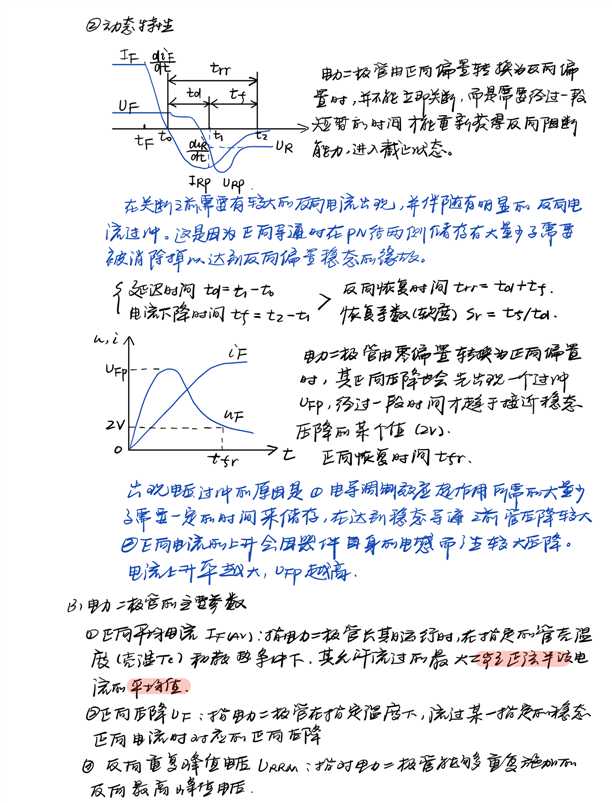 ②动态特性
IF
diF/dt
trr
td
tf
UF
tF
t0
t1
t2
UR
diR/dt
IRP
URP
电力二极管由正向偏置转换为反向偏
置时,并不能立即关断,而是需要经过一段
短暂的时间才能重新获得反向阻断
能力,进入截止状态。
在关断之前需要有较大的反向电流出现,并伴随有明显的反向电
流过冲。这是因为正向导通时在PN结两侧储存有大量少子需要
被消除掉以达到反向偏置稳态的缘故。
延迟时间 td=t1-t0
电流下降时间 tf=t2-t1
反向恢复时间 trr=td+tf.
恢复系数(软度) Sr=tf/td.
u,i
iF
UFp
uF
2V
0
tfr
t
电力二极管由零偏置转换为正向偏置
时,其正向压降也会先出现一个过冲
UFP,经过一段时间才趋于接近稳态
压降的某个值(2V).
正向恢复时间tfr.
出现电压过冲的原因是①电导调制效应起作用所需的大量少
子需要一定的时间来储存,在达到稳态导通之前管压降较大
②正向电流的上升会因器件自身的电感而产生较大压降。
电流上升率越大,UFP越高.
(3)电力二极管的主要参数
①正向平均电流IF(AV):指电力二极管长期运行时,在指定的管壳温
度(壳温Tc)和散热条件下,其允许流过的最大工频正弦半波电
流的平均值.
②正向压降UF:指电力二极管在指定温度下,流过某一指定的稳态
正向电流时对应的正向压降
③反向重复峰值电压URRM:指对电力二极管能够重复施加的
反向最高峰值电压.